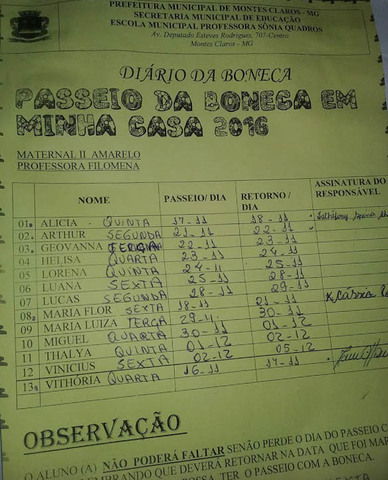 PREFEITURA MUNICIPAL DE MONTES CLAROS - MG
SECRETARIA MUNICIPAL DE EDUCAÇÃO
ESCOLA MUNICIPAL PROFESSORA SÔNIA QUADROS
Av. Deputado Esteves Rodrigues, 707-Centro
Montes Claros – MG
DIÁRIO DA BONECA
PASSEIO DA BONECA EM
MINHA CASA 2016
MATERNAL II AMARELO
PROFESSORA FILOMENA
NOME PASSEIO/ DIA RETORNO / DIA ASSINATURA DO RESPONSÁVEL
01 ALICIA - QUINTA 17-11 18-11
02 ARTHUR SEGUNDA 21-11 22-11
03 GEOVANNA TERÇA 22-11 23-11
04 HELISA QUARTA 23-11 24-11
05 LORENA QUINTA 24-11 25-11
06 LUANA SEXTA 25-11 28-11
07 LUCAS SEGUNDA 28-11 29-11
08 MARIA FLOR SEXTA 18-11 21-11 Cássia
09 MARIA LUIZA TERÇA 29-11 30-11
10 MIGUEL QUARTA 30-11 01-12
11 THALYA QUINTA 01-12 02-12
12 VINICIUS SEXTA 02-12 05-12
13 VITHÓRIA QUARTA 16-11 17-11
OBSERVAÇÃO
O ALUNO (A) NÃO PODERÁ FALTAR SENÃO PERDE O DIA DO PASSEIO
QUE DEVERÁ RETORNAR NA DATA QUE FOI
TER O PASSEIO COM A BONECA.